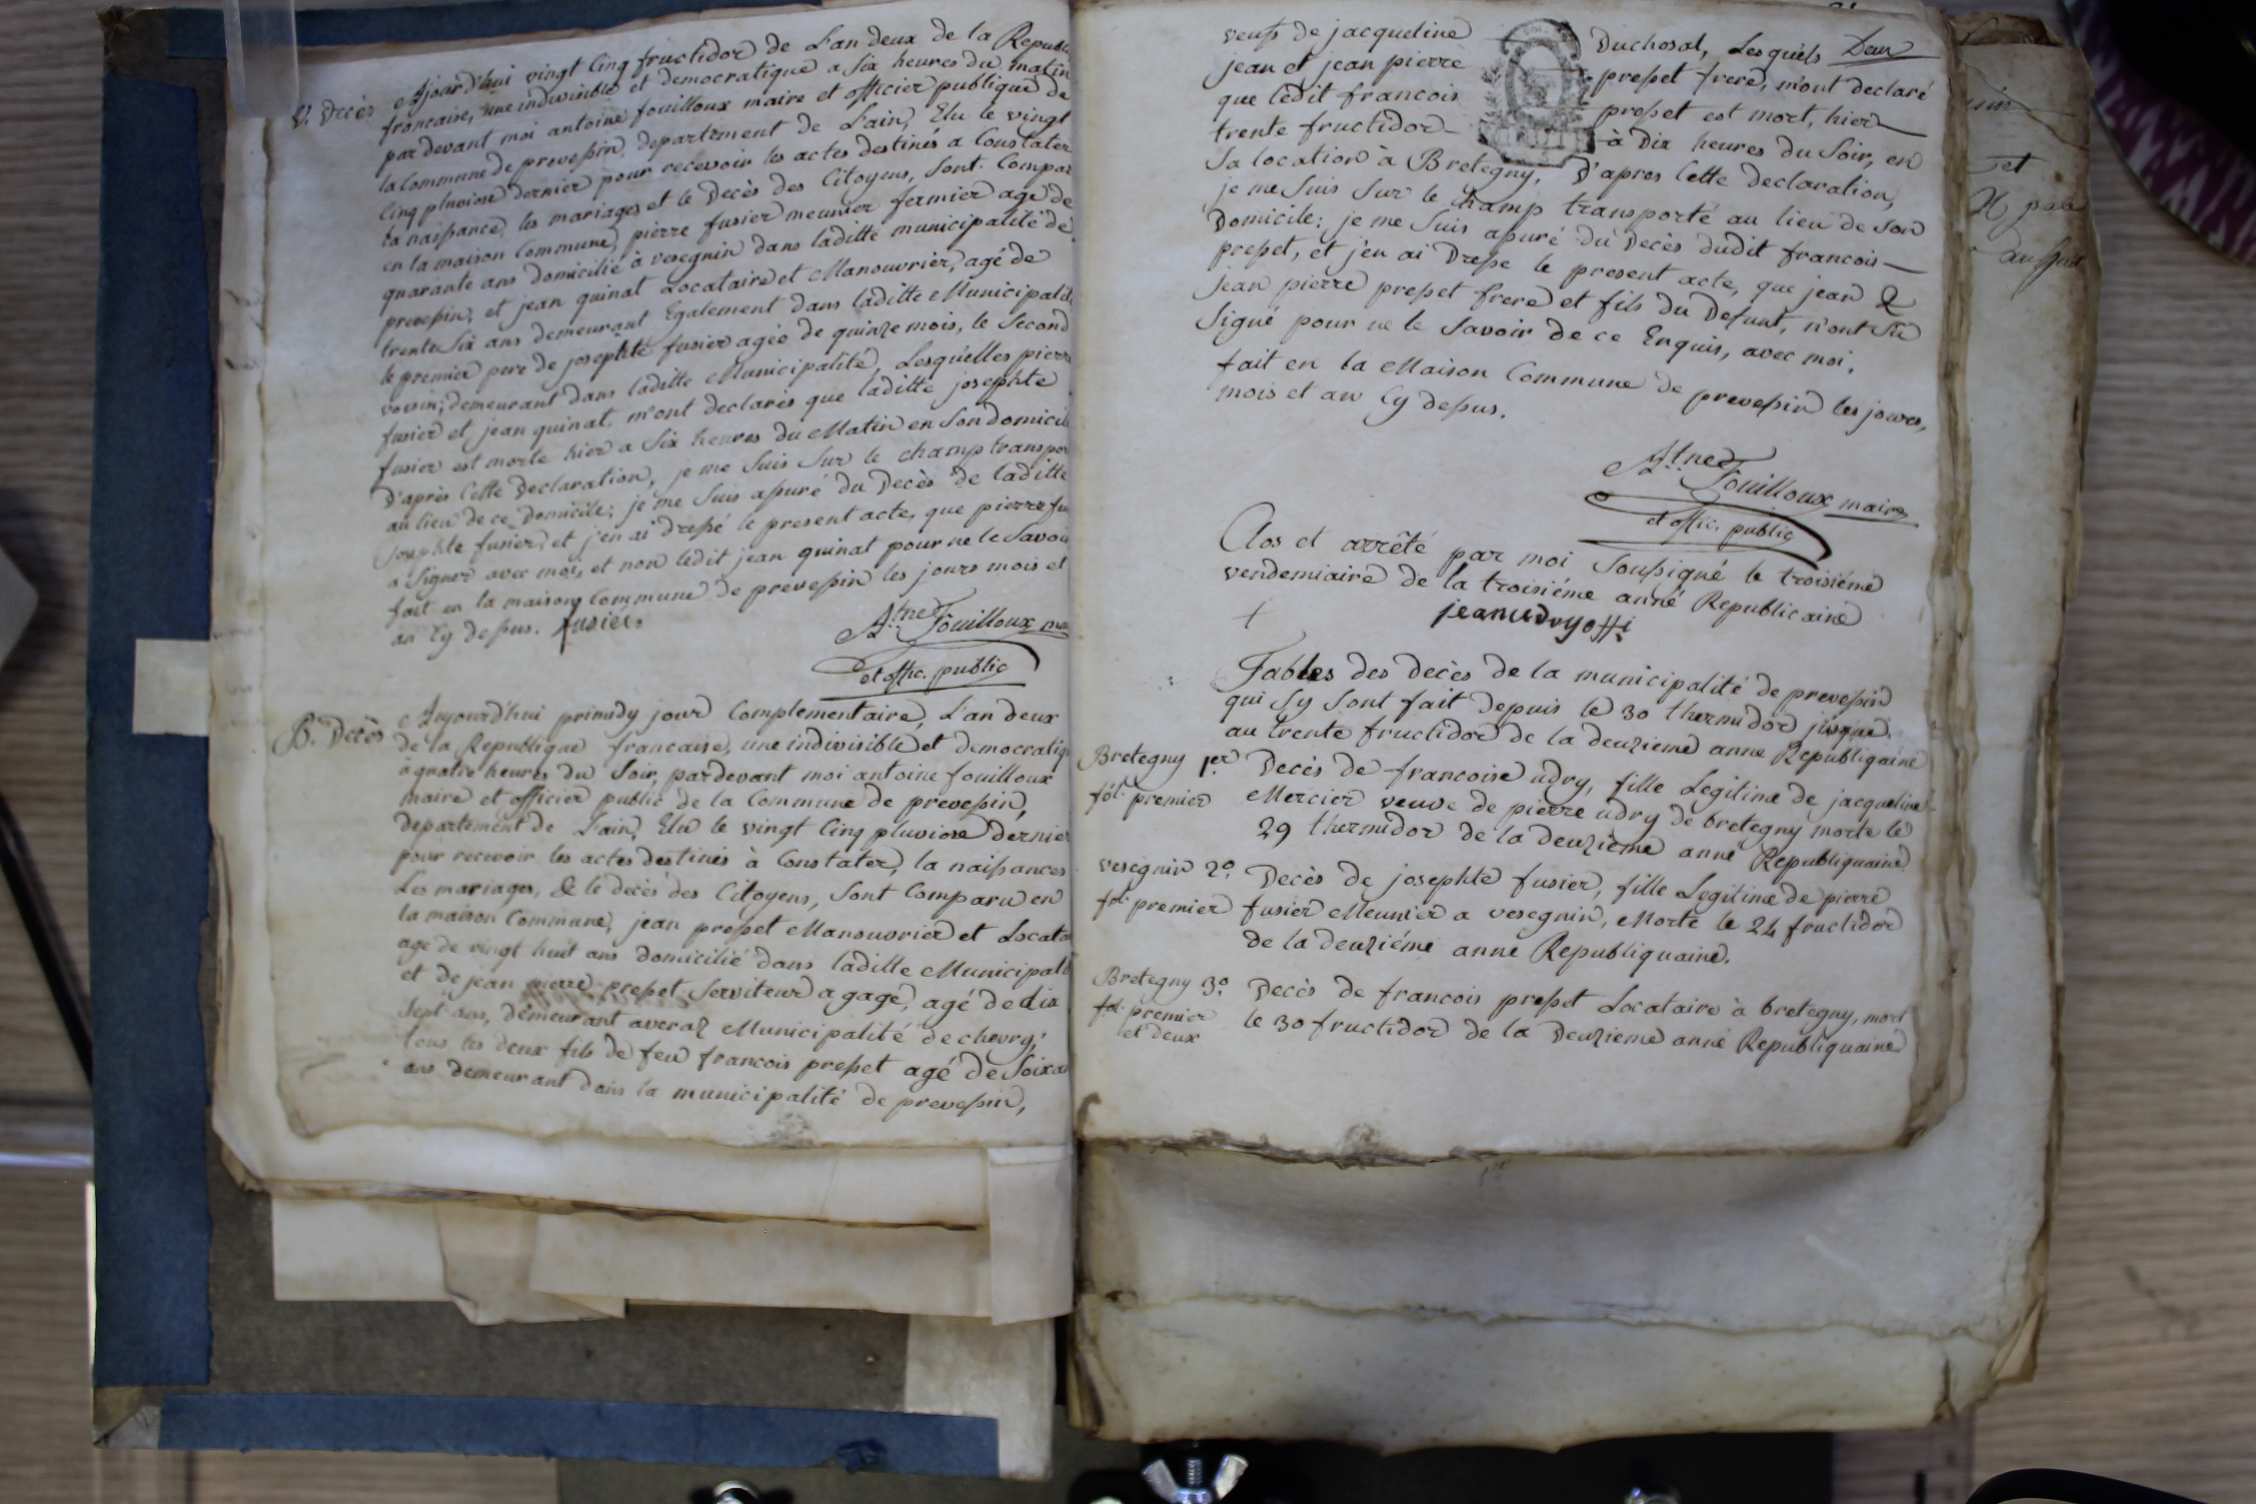 V. Decès
Aujourd'hui vingt Cinq fructidor de L'an deux de la Republi
francaise, une indivisible et democratique a Six heures du matin
pardevant moi antoine fouilloux maire et officier publique de
la Commune de prevessin, departement de L'ain, Elu le vingt
Cinq pluviose dernier pour recevoir les actes destinés a Constater
la naissance, les mariages et le Decès des Citoyens, Sont Compar
en la maison Commune, pierre fusier meunier fermier agé de
quarante ans domicilié à vesegnin dans laditte municipalité de
prevessin, et jean quinat Locataire et Manouvrier, agé de
trente Six ans demeurant Egalement dans laditte Municipalité
le premier pere de josephte fusier agée de quinze mois, le Second
voisin, demeurant dans laditte Municipalité, Lesquelles pierre
fusier et jean quinat m'ont declarés que laditte josephte
fusier est morte hier a Six heures du Matin en Son domicil
D'après Cette Declaration, je me Suis Sur le champ transpor
au lieu de ce Domicile; je me Suis assuré du Decès de laditte
josephte fusier, et j'en ai dressé le present acte, que pierre fu
a Signer avec moi, et non ledit jean quinat pour ne le Savoir
fait en la maison Commune de prevessin les jours mois et
an Cy dessus. fusier
Atne Fouilloux ma
et offic. public
B. Decès
Aujourd'hui primidy jour Complementaire, L'an deux
de la Republique francaise, une indivisible et democratiqu
à quatre heures du Soir, pardevant moi antoine fouilloux
maire et officier public de la Commune de prevessin,
departement de L'ain, Elu le vingt Cinq pluviose dernier
pour recevoir les actes destinés à Constater, la naissances
Les mariages, & le decès des Citoyens, Sont Comparu en
la maison Commune, jean prosset Manouvrier et Locata
age de vingt huit ans domicilié dans laditte Municipalit
et de jean pierre prosset Serviteur a gage, agé de dix
Sept ans, demeurant averaz Municipalité de chevry;
tous les deux fils de feu francois prosset agé de Soixan
ans demeurant dans la municipalité de prevessin,
veuf de jacqueline Duchosal, Lesquels Deux
jean et jean pierre prosset frere, m'ont declaré
que ledit francois prosset est mort, hier
trente fructidor à Dix heures du Soir, en
Sa location à Bretegny, D'apres Cette declaration,
je me Suis Sur le champ transporté au lieu de Son
Domicile; je me Suis assuré du Decès dudit francois
prosset, et j'en ai Dresse le present acte, que jean &
jean pierre prosset frere et fils du Defunt, n'ont Sù
Signé pour ne le Savoir de ce Enquis, avec moi,
fait en la Maison Commune de prevessin les jours,
mois et an Cy dessus.
Atne Fouilloux maire
et offic. public
Clos et arrêté par moi Soussigné le troisiéme
vendemiaire de la troisiéme anné Republicaine
jean udry offi
Tables des Decès de la municipalité de prevessin
qui Sy Sont fait depuis le 30 thermidor jusque
au trente fructidor de la deuzieme anne Republiquaine
Bretegny 1er Decès de francoise udry, fille Legitime de jacqueline
fol. premier Mercier veuve de pierre udry de bretegny morte le
29 thermidor de la deuzième anné Republiquaine
vesegnin 2o. Decès de josephte fusier, fille Legitime de pierre
fol. premier fusier Meunier a vesegnin, Morte le 24 fructidor
de la deuziéme anne Republiquaine.
Bretegny 3o. Decès de francois prosset Locataire à bretegny, mort
fol. premier le 30 fructidor de la Deuzieme anné Republiquaine
et deux